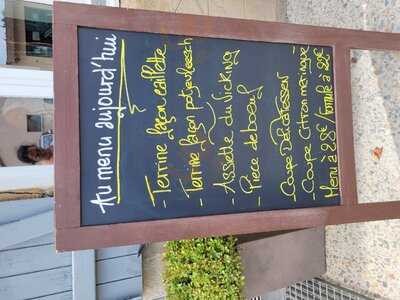 Au menu aujourd'hui
- Terrine façon caillette
- Terrine façon potjevleesch
- Assiette du Vicking
- Pièce de boeuf
- Coupe Delicatessen
- Coupe Citron meringue
Menu à 28€ / Formule à 22€